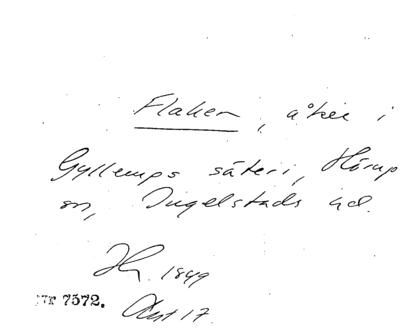 Flaken, åker i
Gyllerups säteri, Hörup
sn, Ingelstads hd.
1849
nr 7572. Avst 17